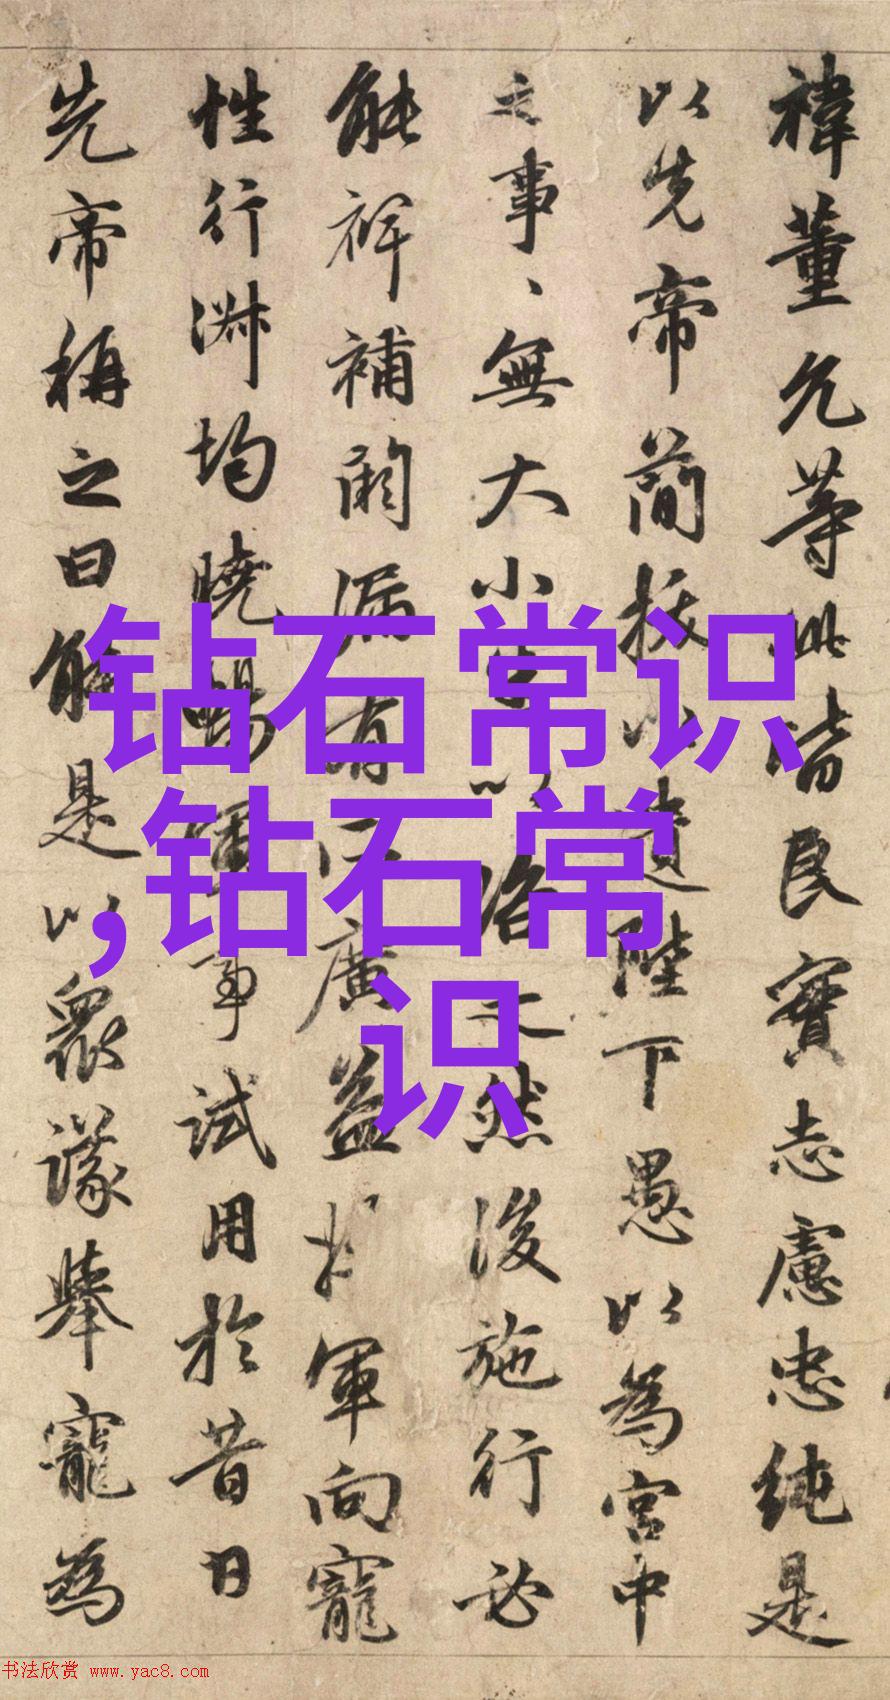 禕董允等此皆良實志慮忠純是
以先帝簡拔以遺陛下愚以為宮中
之事、無大小悉以咨之然後施行必
能裨補闕漏有所廣益將軍向寵
性行淑均曉暢軍事試用於昔日
先帝稱之曰能是以衆議舉寵為
钻石常识
,钻石常
识
书法欣赏 www.yac8.com